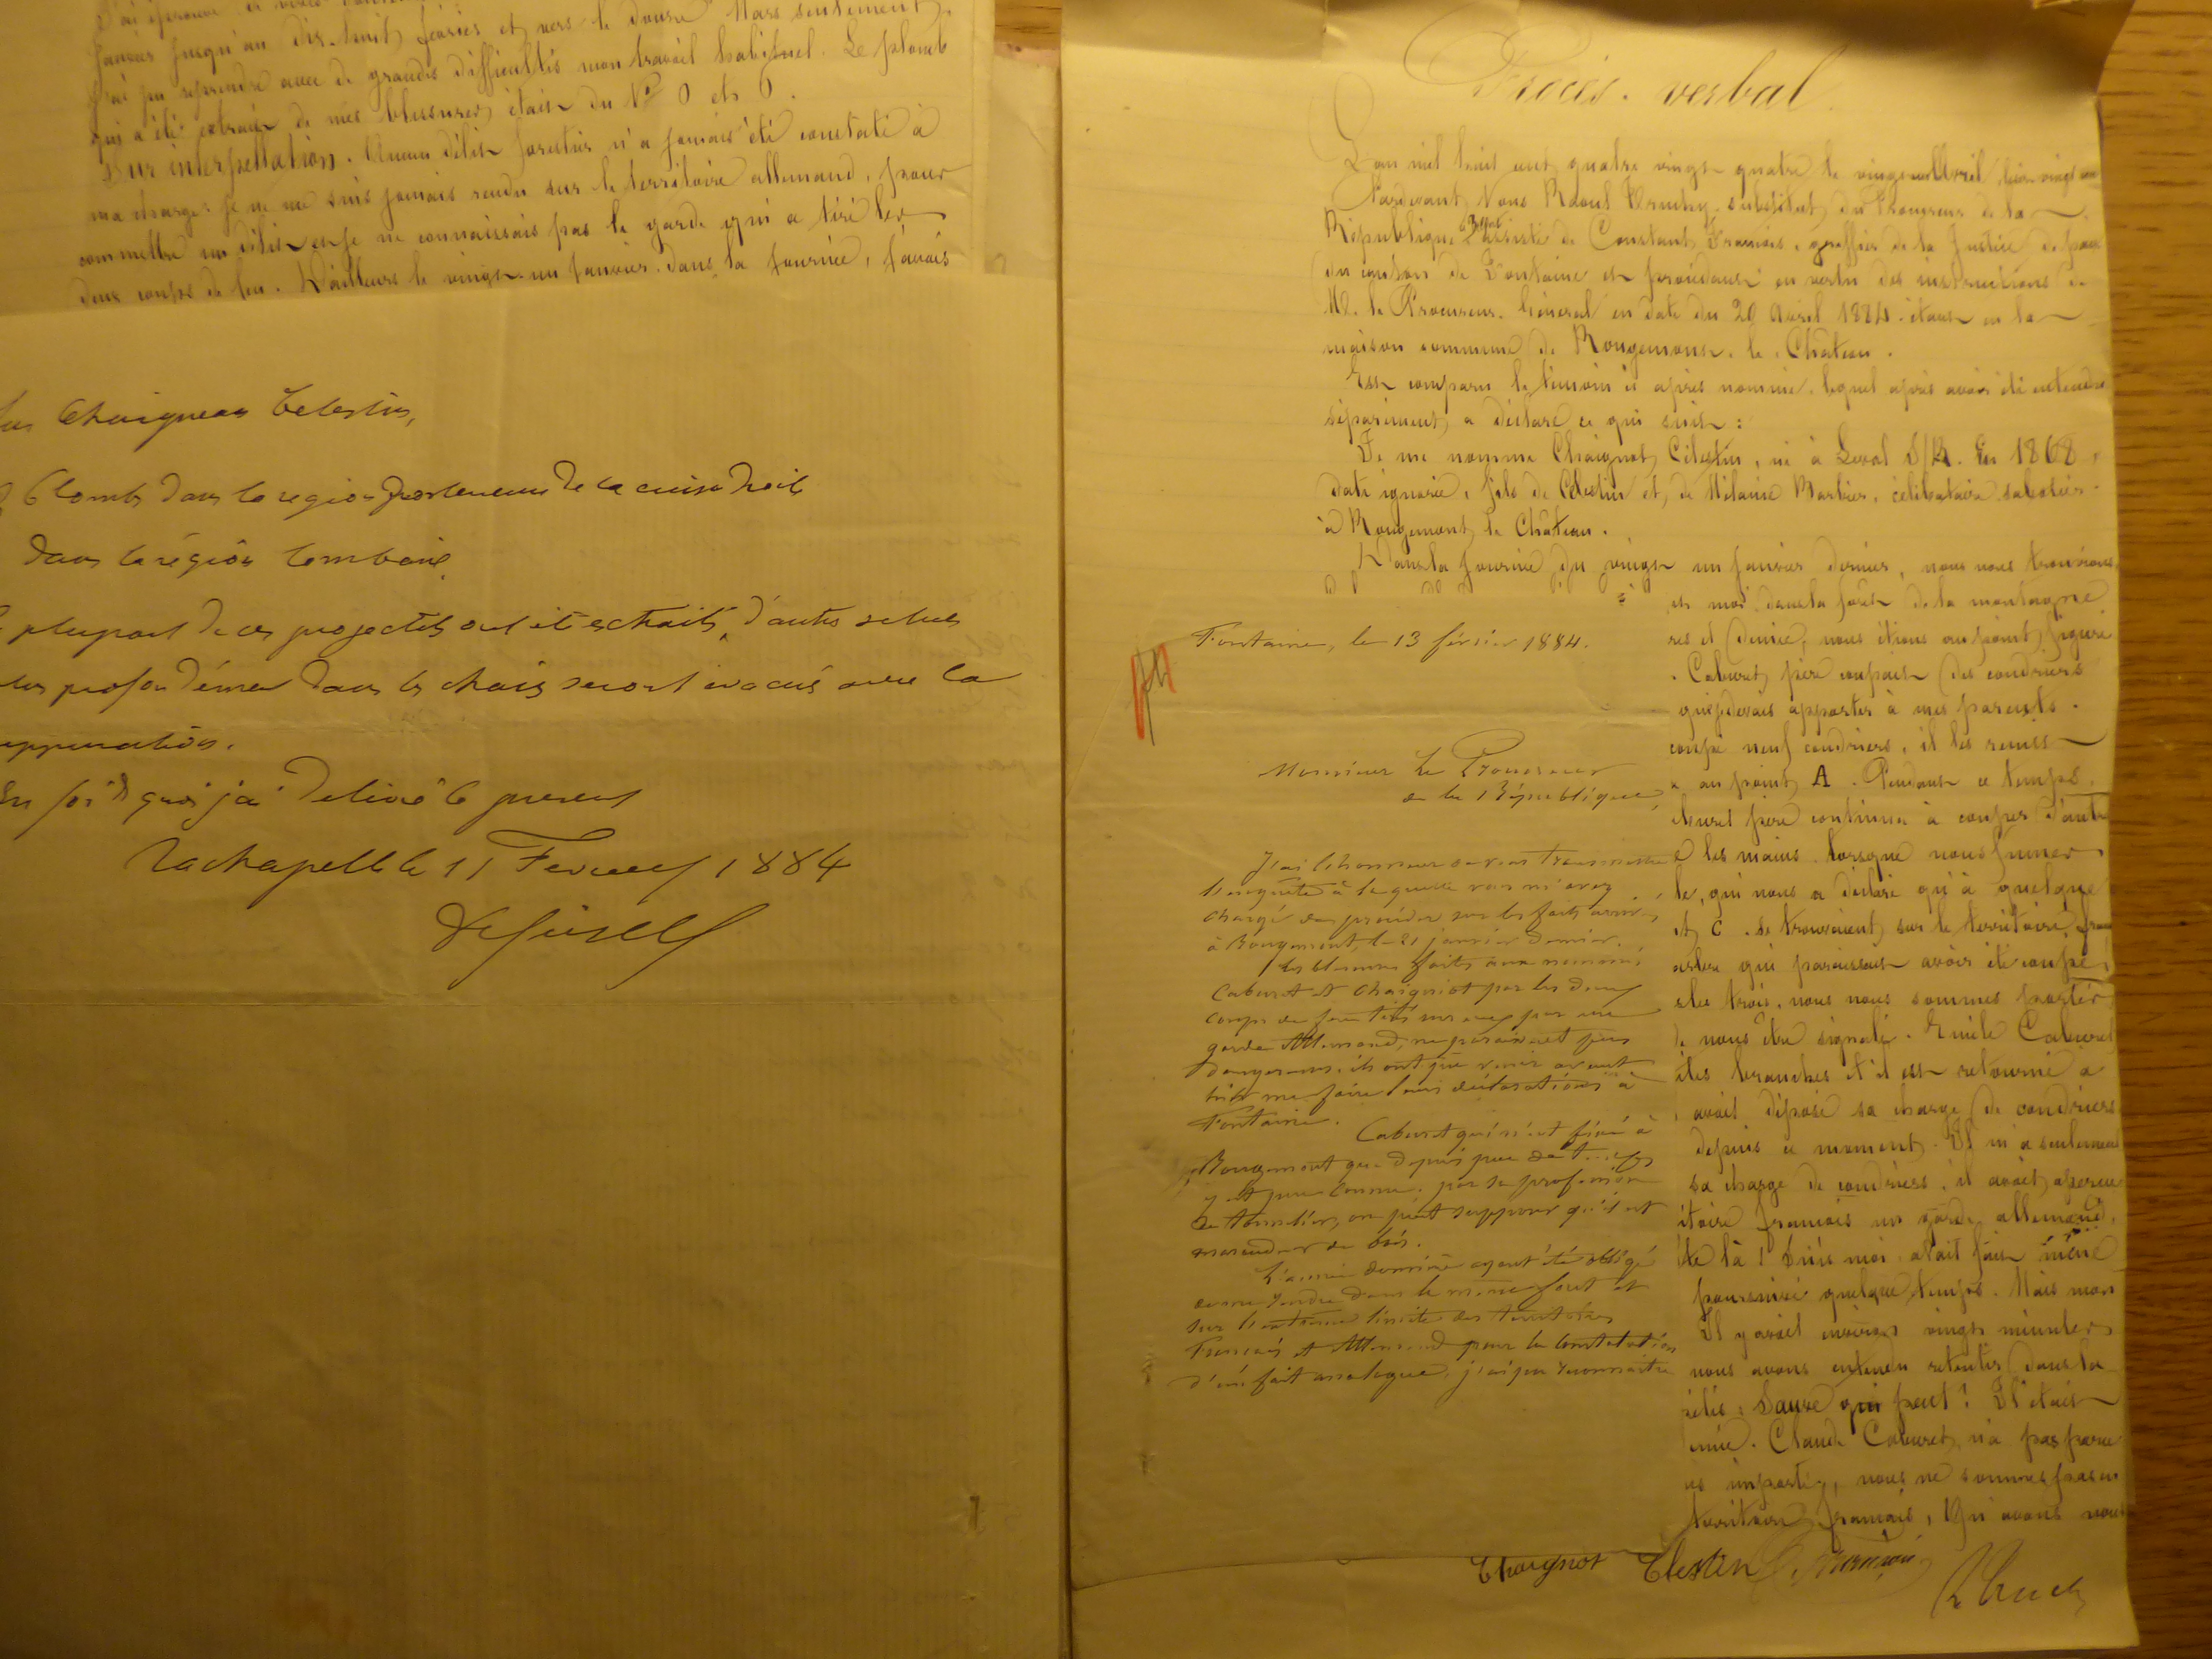 janvier jusqu'au dix-huit février et vers le douze Mars seulement,
j'ai pu reprendre avec de grandes difficultés mon travail habituel. Le plomb
qui a été extrait de mes blessures était du N° 0 et 0.
Sur interpellation. Aucun délit forestier n'a jamais été constaté à
ma charge. Je ne me suis jamais rendu sur le territoire allemand, pour
commettre un délit et je ne connaissais pas le garde qui a tiré les
deux coups de feu. D'ailleurs le vingt-un janvier dans la journée, j'avais
Chaigneau Celestin,
Plombs dans la region posterieure de la cuisse droite
dans la région lombaire
plupart de ces projectiles ont été extraits, d'autres situés
plus profondément dans les chairs seront évacués avec la
suppuration.
En foi de quoi j'ai delivré le present
Lachapelle le 11 Fevrier 1884
Procès-verbal
L'an mil huit cent quatre vingt-quatre le vingt-un Avril
Pardevant Nous Raoul substitut du Procureur de la
République à Belfort assisté de Constant François, greffier de la Justice de paix
du canton de Fontaine et procédant en vertu des instructions de
M. le Procureur-Général en date du 20 Avril 1884 étant en la
maison commune de Rougemont-le-Château.
Est comparu le témoin ci après nommé, lequel après avoir été entendu
séparément, a déclaré ce qui suit :
Je me nomme Chaignot Célestin, né à Leval D/B. En 1868,
date ignorée, fils de Célestin et de Mélanie Barbier, célibataire sabotier
à Rougemont le Château.
Dans la journée du vingt un janvier dernier, nous nous trouvions
et moi dans la forêt de la montagne
nous étions au point figuré
Caburet père coupait des coudriers
que je devais apporter à mes parents.
coupé neuf coudriers, il les remit
au point A. Pendant ce temps
Caburet père continua à couper d'autres
les mains lorsque nous fumes
le, qui nous a déclaré qu'à quelque
et C. se trouvaient sur le territoire fran
arbre qui paraissait avoir été coupé
les trois, nous nous sommes portés
de nous être signalé. Emile Caburet
des branches et il est retourné à
avait déposé sa charge de coudriers
depuis ce moment. Il m'a seulement
sa charge de coudriers, il avait aperçu
itoire français un garde allemand,
te là ! Suis moi avait fait même
poursuivi quelque temps. Mais mon
Il y avait environ vingt minutes
nous avons entendu retentir dans la
Sauve qui peut ! Il était
Claude Caburet n'a pas peur
importe, nous ne sommes pas en
territoire français, Qu'avons nous
Chaignot Celestin
Fontaine, le 13 février 1884.
Monsieur le Procureur
de la République,
J'ai l'honneur de vous transmettre
l'enquête à laquelle vous m'avez
chargé de procéder sur les faits arrivés
à Rougemont, le 21 janvier dernier.
Les blessures faites aux nommés
Caburet et Chaigniot par les deux
coups de feu tirés sur eux par un
garde Allemand, ne paraissent pas
dangereuses. ils ont pu venir avant
hier me faire leurs déclarations à
Fontaine.
Caburet qui n'est fixé à
Rougemont que depuis peu de temps
y est peu connu. par sa profession
de tonnelier, on peut supposer qu'il est
maraudeur de bois.
L'année dernière ayant été obligé
de me rendre dans la même forêt et
sur l'extrême limite des territoires
Français et Allemand pour la constatation
d'un fait analogue, j'ai pu reconnaitre